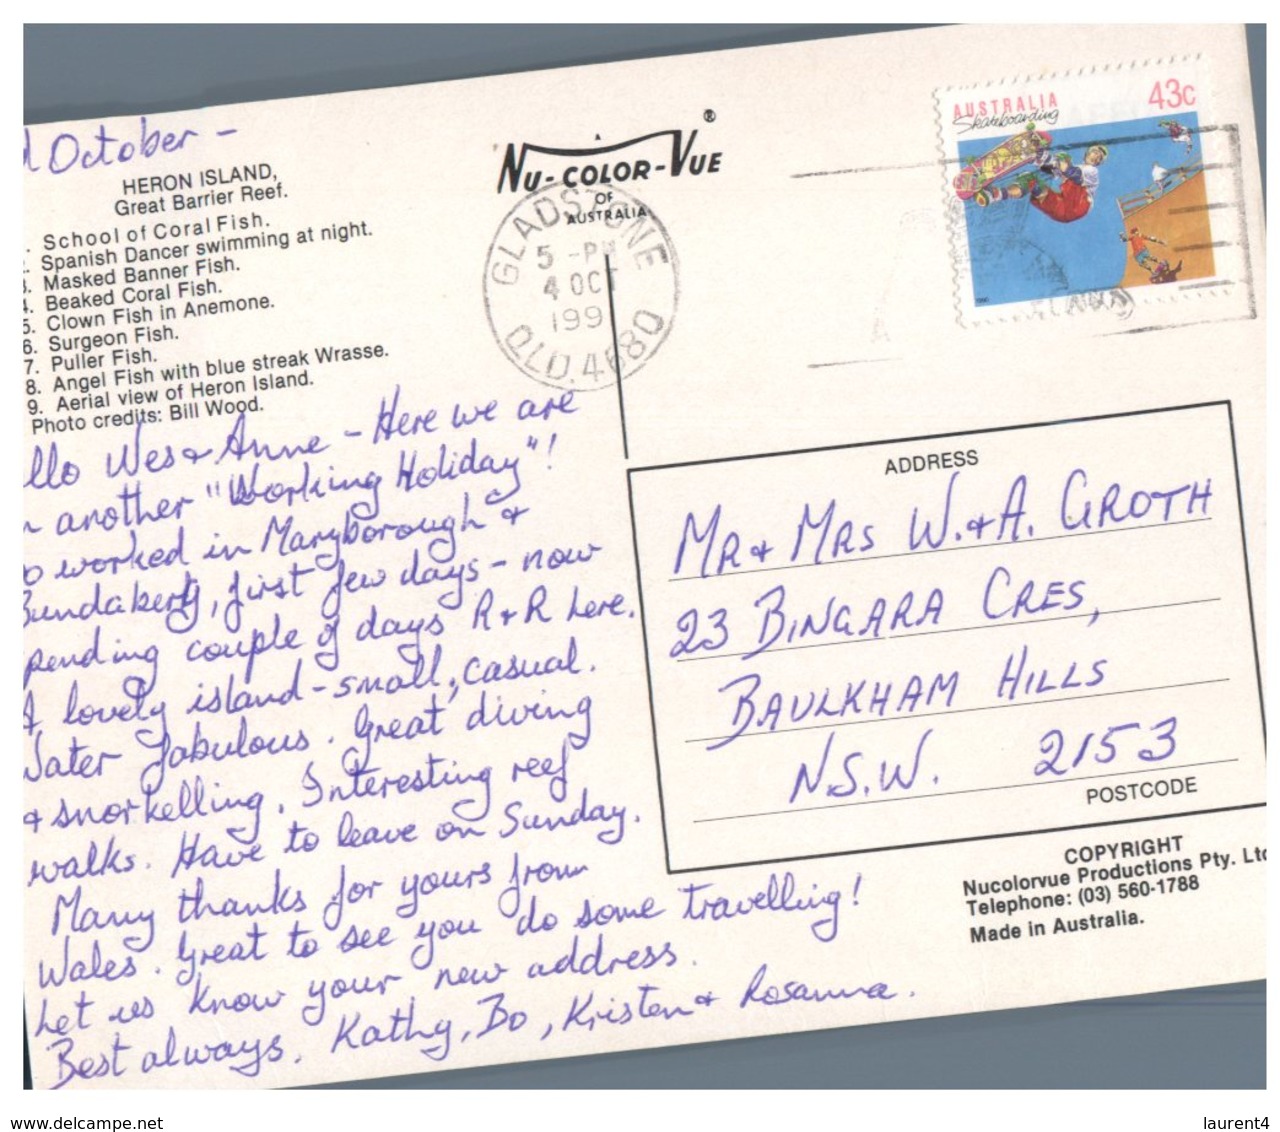 October -
HERON ISLAND,
Great Barrier Reef.
School of Coral Fish.
Spanish Dancer swimming at night.
Masked Banner Fish.
4. Beaked Coral Fish.
5. Clown Fish in Anemone.
6. Surgeon Fish.
7. Puller Fish.
8. Angel Fish with blue streak Wrasse.
9. Aerial view of Heron Island.
Photo credits: Bill Wood.
llo Wes & Anne - Here we are
n another "Working Holiday"!
o worked in Maryborough &
Bundaberg, first few days - now
pending couple of days R & R here.
A lovely island - small, casual.
Water fabulous. Great diving
& snorkelling. Interesting reef
walks. Have to leave on Sunday.
Many thanks for yours from
Wales. Great to see you do some travelling!
Let us know your new address.
Best always. Kathy, Bo, Kristen & Rosanna.
NU-COLOR-VUE ®
OF
AUSTRALIA
GLADSTONE
5 -PM
4 OCT
199
QLD. 4680
AUSTRALIA 43c
Skateboarding
ADDRESS
MR & MRS W. & A. GROTH
23 BINGARA CRES,
BAULKHAM HILLS
N.S.W. 2153
POSTCODE
COPYRIGHT
Nucolorvue Productions Pty. Ltd
Telephone: (03) 560-1788
Made in Australia.
www.delcampe.net
laurent4